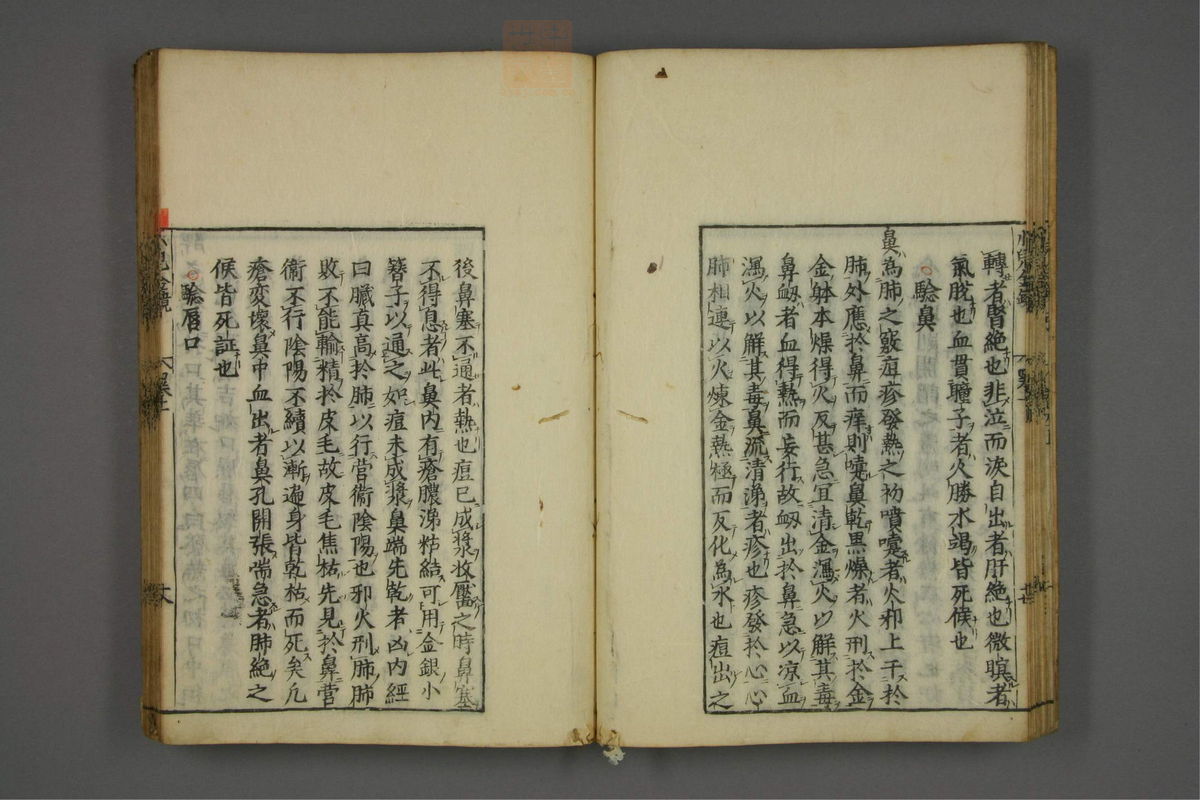 轉者腎絶也悲泣而淚自出者肝絶也微瞑者
氣脫也血貫瞳子者火勝水竭皆死候也
驗鼻
鼻為肺之竅疽疹發熱之初噴嚏者火邪上干於
肺外應於鼻而痒則嚏鼻乾黒燥者火刑於金
金躰本燥得火反甚急宜清金瀉火以解其毒
鼻衂者血得熱而妄行故衂出於鼻急以凉血
瀉火以解其毒鼻流清涕者疹也疹發於心心
肺相連以火煉金熱極而反化為水也痘出之
後鼻塞不通者熱也痘已成漿收靨之時鼻塞
不得息者此鼻内有瘡膿涕粘結可用金銀小
簪子以通之如痘未成漿鼻端先乾者凶内經
曰臓真高於肺以行营衛陰陽也邪火刑肺肺
敗不能輸精於皮毛故皮毛焦枯先見於鼻营
衛不行陰陽不續以漸遍身皆乾枯而死矣凡
瘡変壞鼻中血出者鼻孔開張喘急者肺絶之
候皆死証也
驗唇口